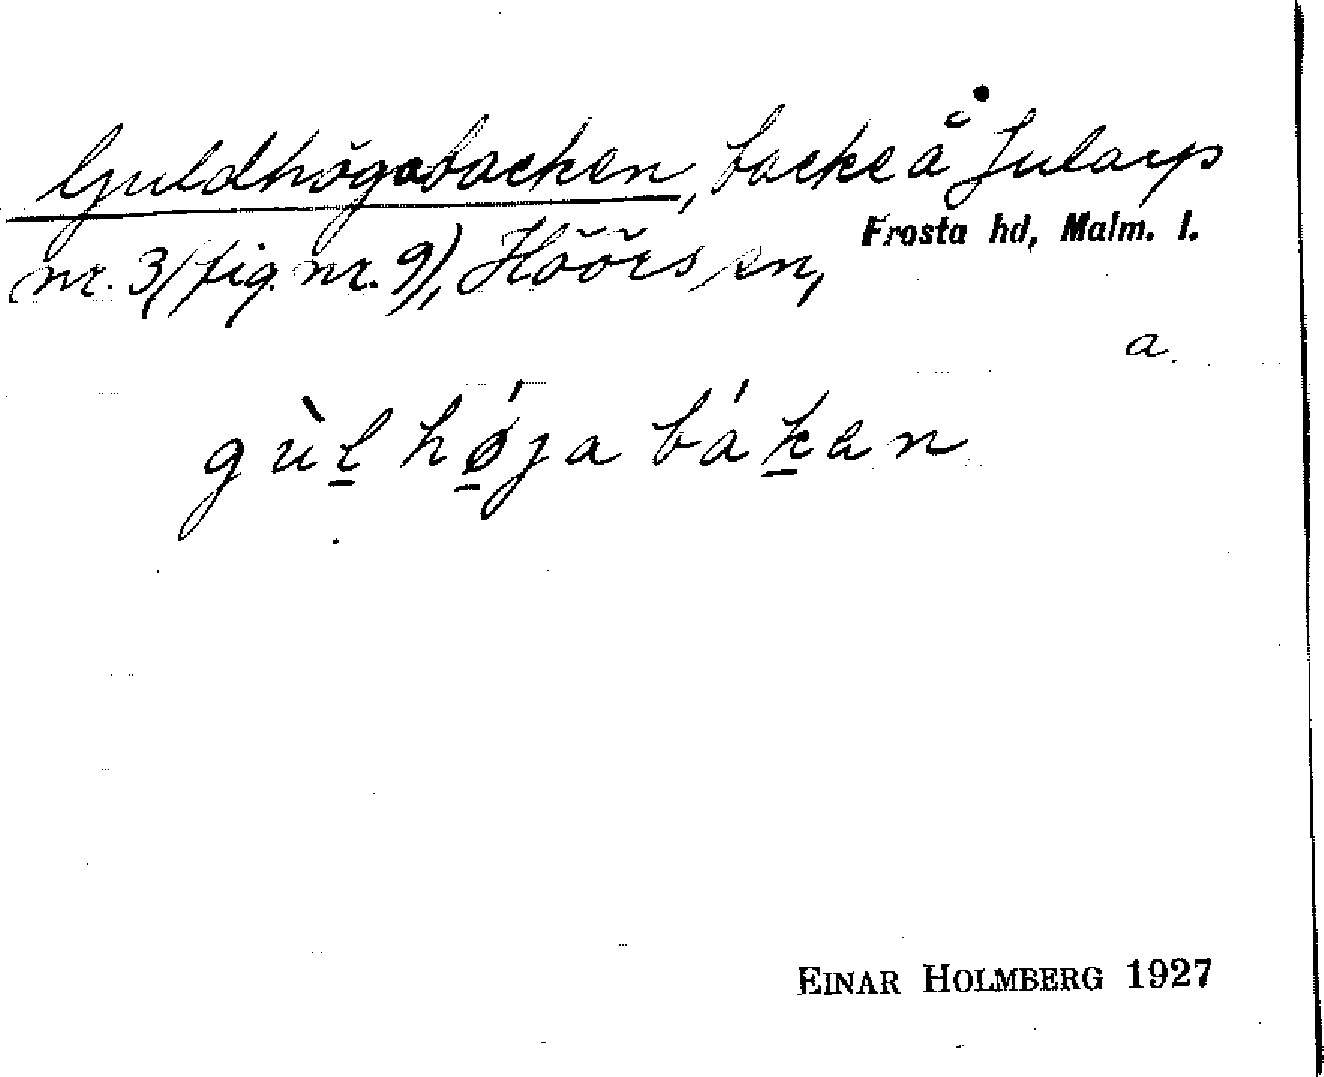 Guldhögabacken, backe å Jularp
Frosta hd, Malm. l.
nr. 3 (fig. nr. 9), Höörs sn,
a.
gùl høja bákan
EINAR HOLMBERG 1927